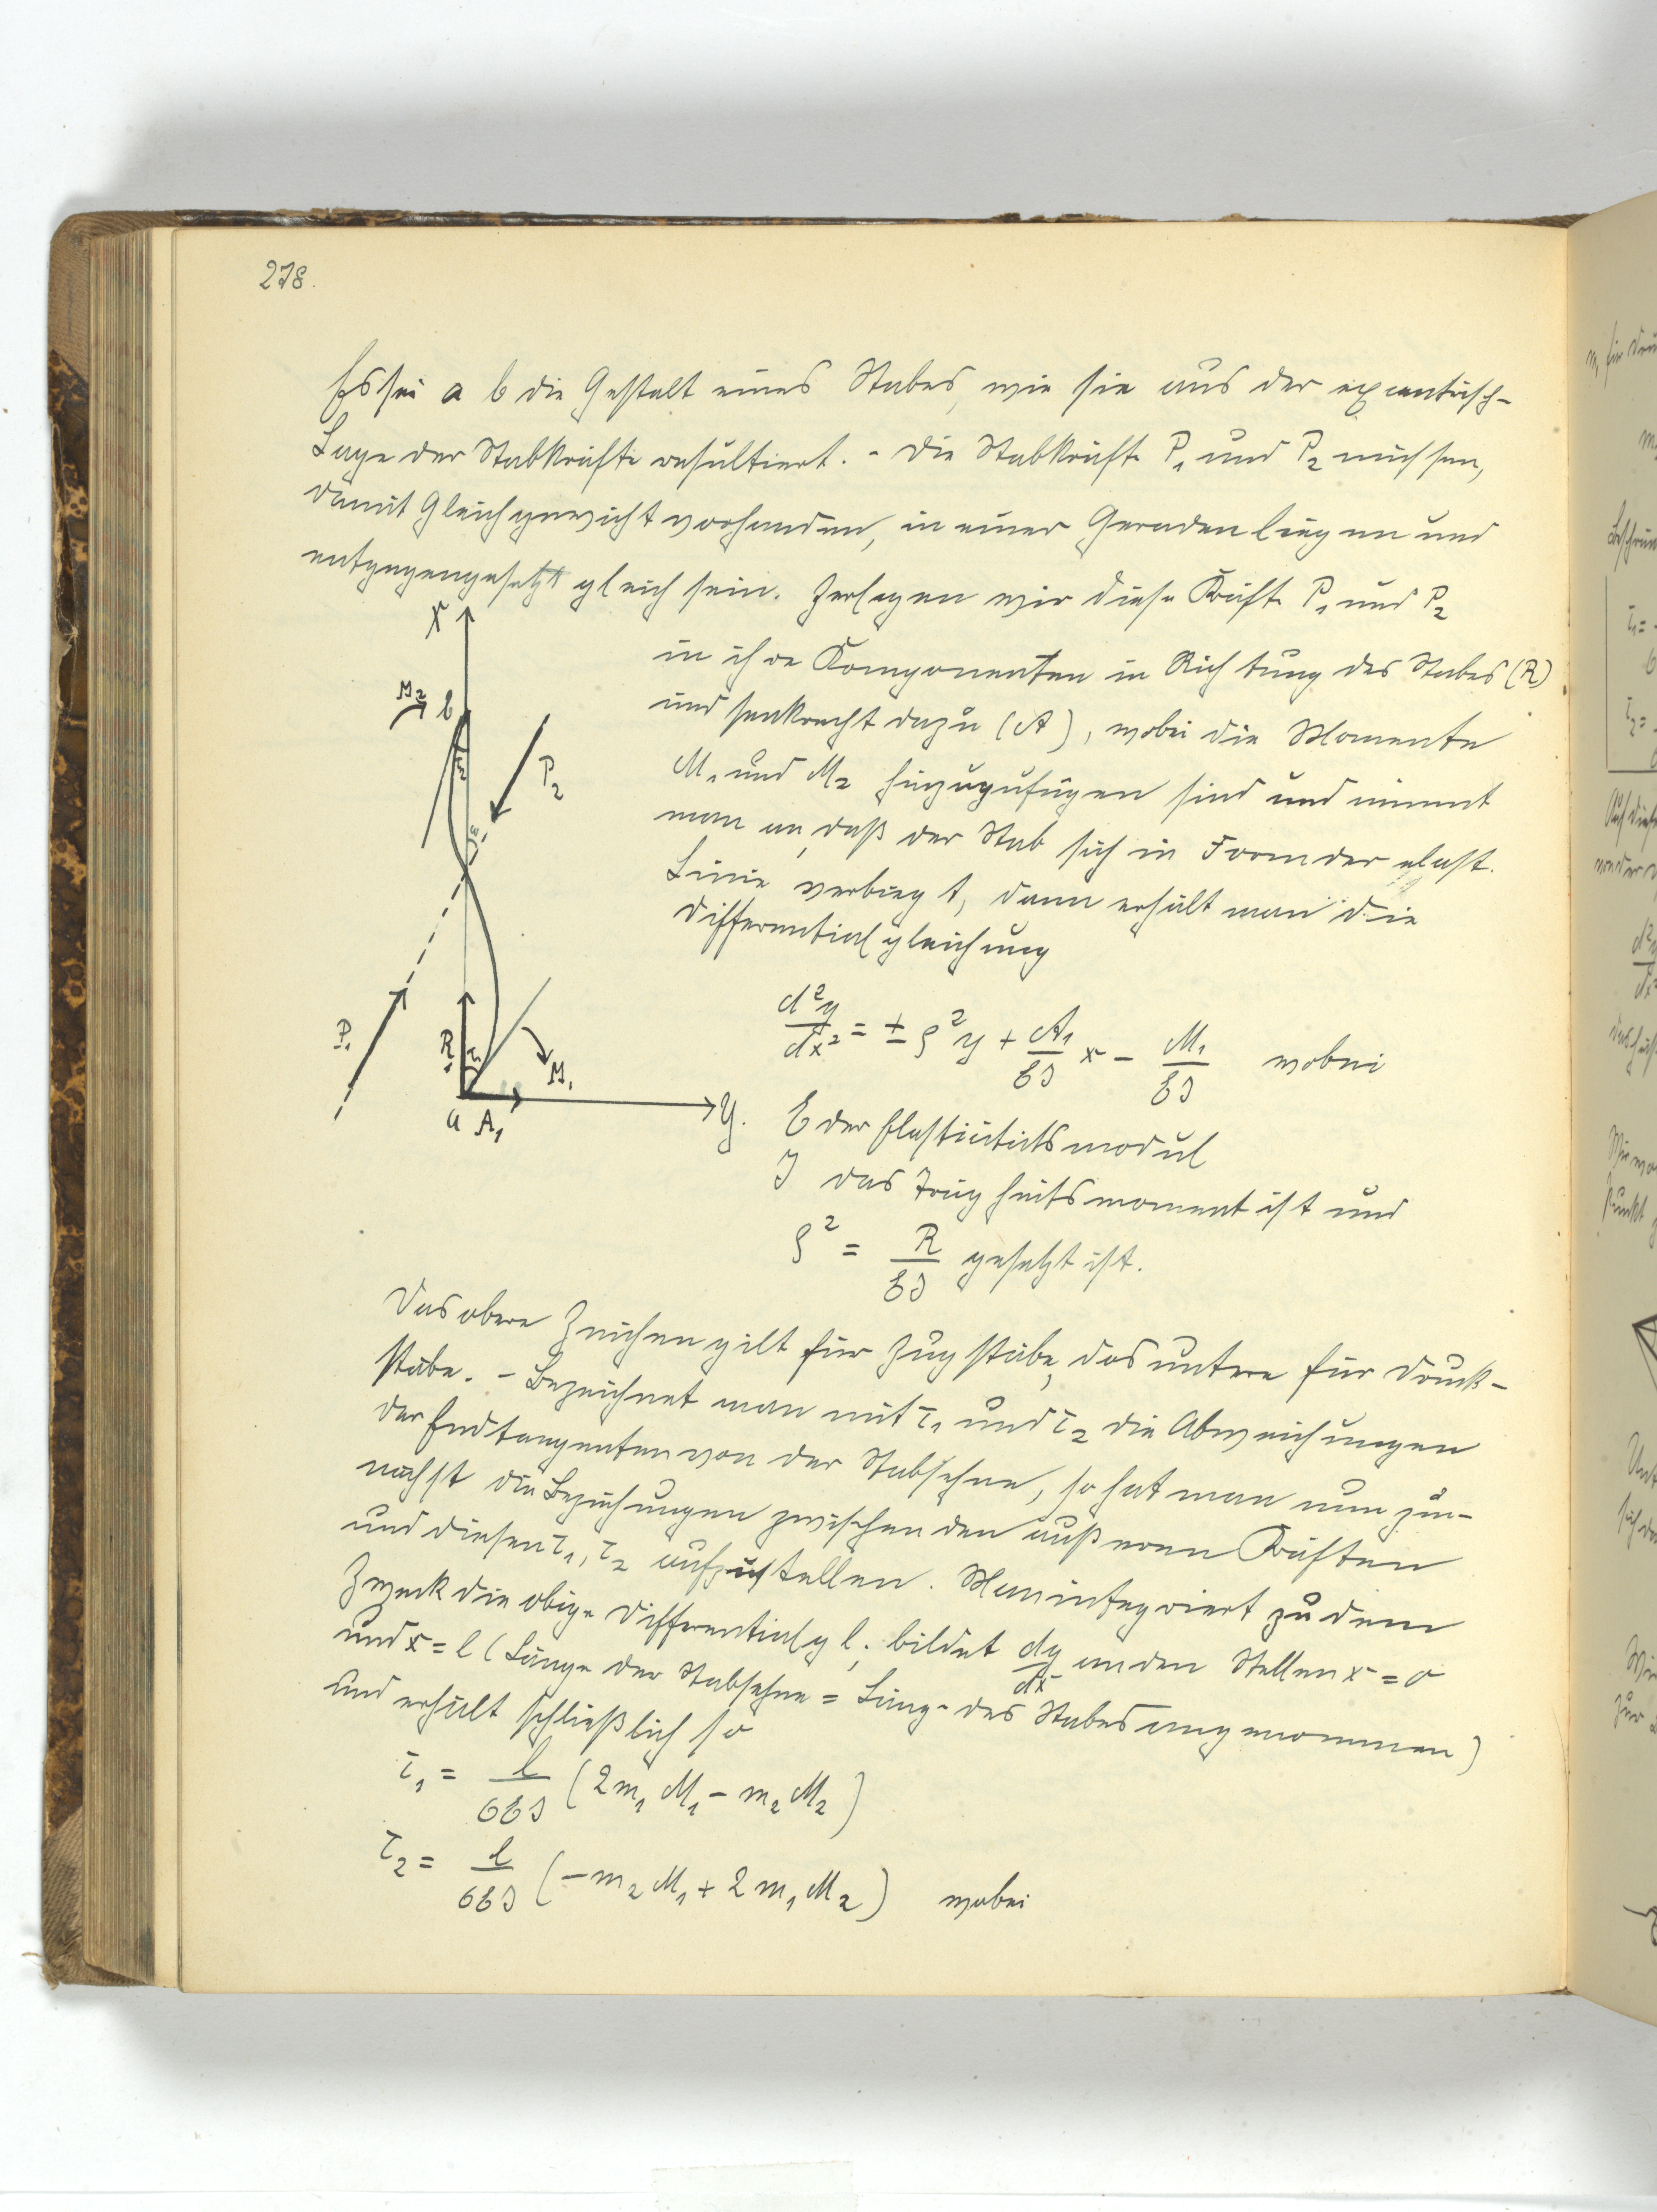 278.
Es sei a b die Gestalt eines Stabes, wie sie aus der expentrisch-
Lage der Stabkräfte resultiert. - Die Stabkräfte P₁ und P₂ müssen,
damit Gleichgewicht vorhanden, in einer Geraden liegen und
entgegengesetzt gleich sein. Zerlegen wir diese Kräfte P₁ und P₂
in ihre Komponenten in Richtung des Stabes (R)
und senkrecht dazu (A), wobei die Momente
M₁ und M₂ hinzuzufügen sind und nimmt
man an, daß der Stab sich in Form der elast.
Linie verbiegt, dann erhält man die
Differentialgleichung
d²y/dx² = ± ρ²y + A₁/EJ x - M₁/EJ wobei
E der Elastizitätsmodul
J das Trägheitsmoment ist und
ρ² = R/EJ gesetzt ist.
X
M₂
b
τ₂
P₂
P₁
R₁
τ₁
M₁
a A₁
y.
Das obere Zeichen gilt für Zugstäbe, das untere für Druck-
stäbe. - Bezeichnet man mit τ₁ und τ₂ die Abweichungen
der Endtangenten von der Stabsehne, so hat man nun zu-
nächst die Beziehungen zwischen den äußeren Kräften
und diesen τ₁, τ₂ aufzustellen. Man integriert zu dem
Zweck die obige Differentialgl., bildet dy/dx an den Stellen x = 0
und x = l (Länge der Stabsehne = Länge des Stabes angenommen)
und erhält schließlich so
τ₁ = l/6EJ (2m₁ M₁ - m₂ M₂)
τ₂ = l/6EJ (-m₂ M₁ + 2 m₁ M₂) wobei